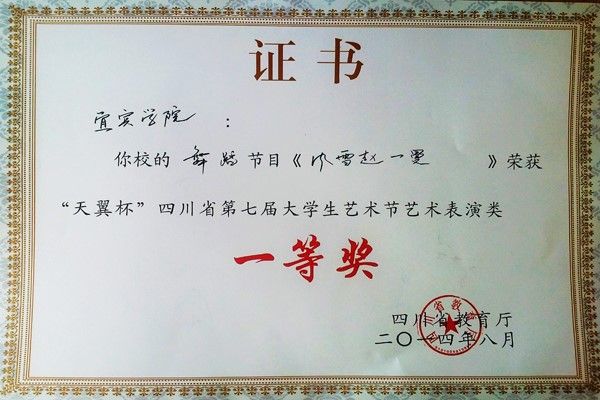 证书
宜宾学院：
你校的 舞蹈 节目《风雪赵一曼》荣获
“天翼杯”四川省第七届大学生艺术节艺术表演类
一等奖
四川省教育厅
二〇一四年八月